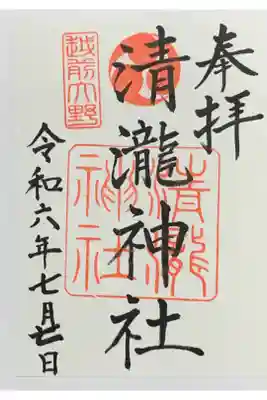 奉拝
清瀧神社
越前大野
清瀧
神社
令和六年七月廿一日